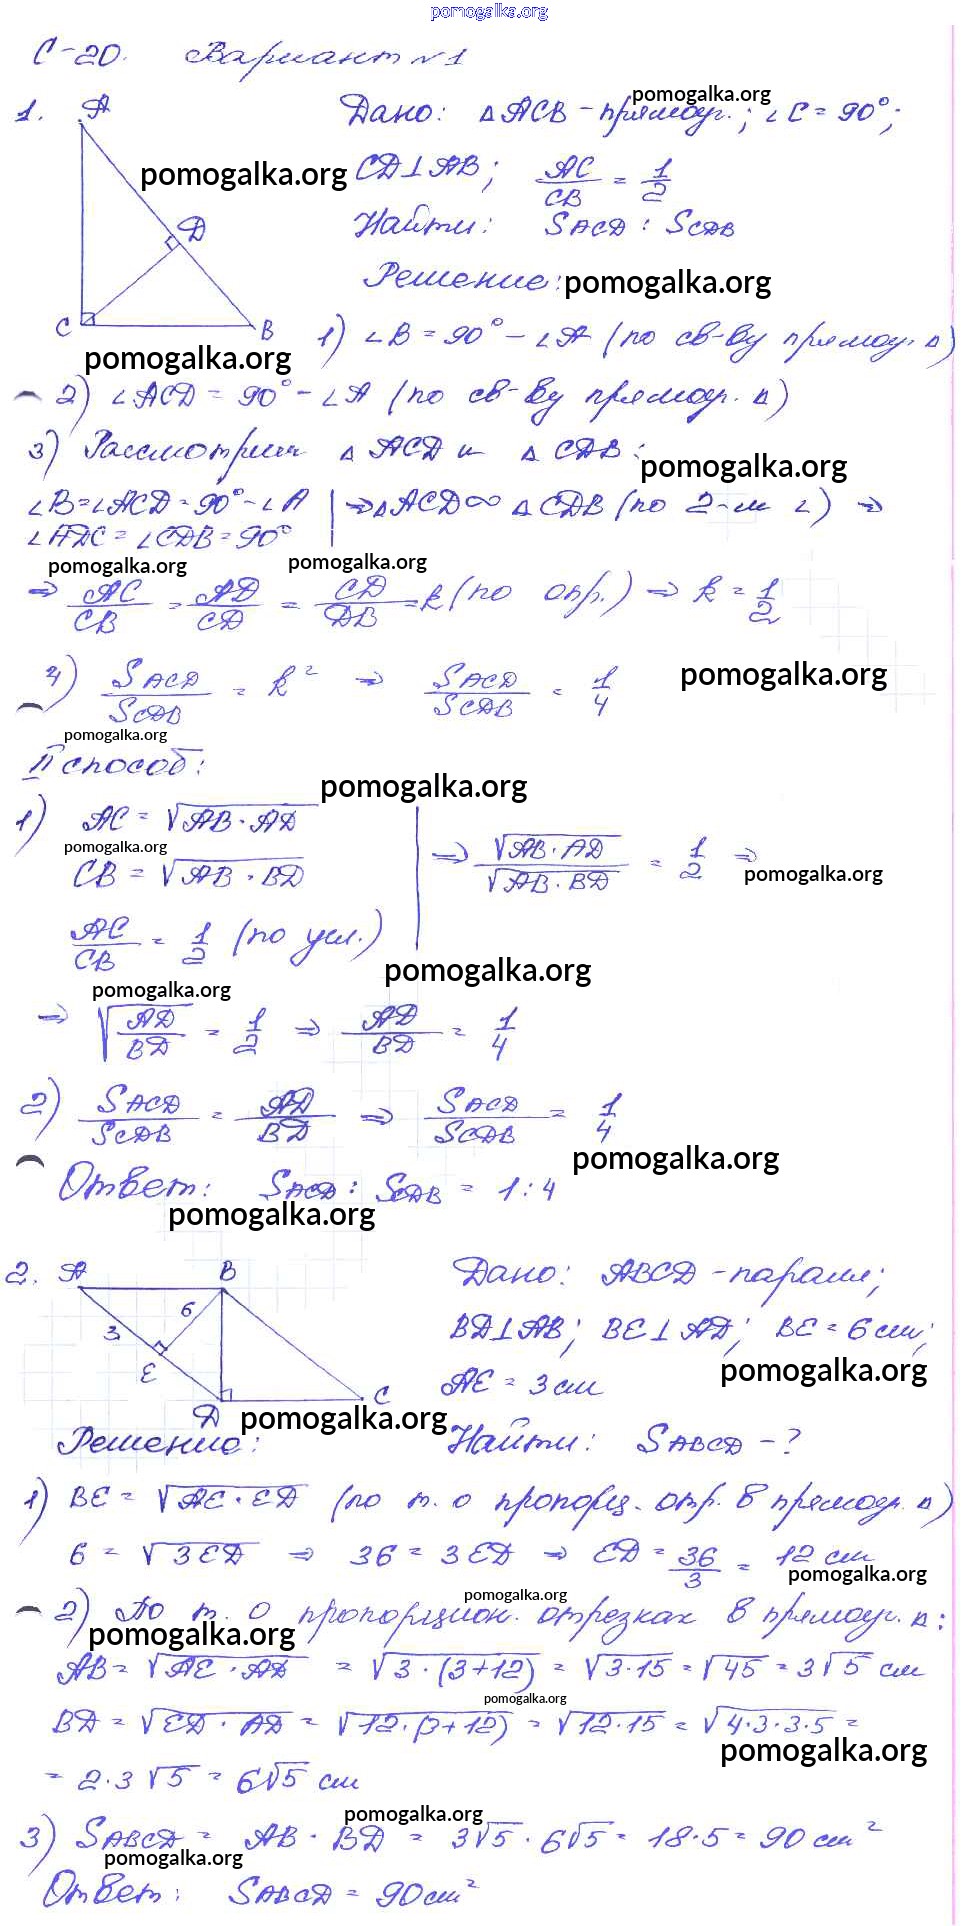 pomogalka.org
С-20. Вариант №1
1. A
pomogalka.org
Дано: △ACB - прямоуг.; ∠C = 90°;
pomogalka.org CD⊥AB; AC/CB = 1/2
D Найти: SACD : SCDB
Решение: pomogalka.org
C B 1) ∠B = 90° - ∠A (по св-ву прямоуг. △)
pomogalka.org
2) ∠ACD = 90° - ∠A (по св-ву прямоуг. △)
3) Рассмотрим △ACD и △CDB:
pomogalka.org
∠B = ∠ACD = 90° - ∠A | ⇒ △ACD ∞ △CDB (по 2-м ∠) ⇒
∠ADC = ∠CDB = 90°
pomogalka.org pomogalka.org
⇒ AC/CB = AD/CD = CD/DB = k (по опр.) ⇒ k = 1/2
4) SACD/SCDB = k² ⇒ SACD/SCDB = 1/4 pomogalka.org
pomogalka.org
II способ:
pomogalka.org
1) AC = √(AB · AD)
pomogalka.org
CB = √(AB · BD) | ⇒ √(AB · AD)/√(AB · BD) = 1/2 ⇒
pomogalka.org
AC/CB = 1/2 (по усл.)
pomogalka.org
pomogalka.org
⇒ √(AD/BD) = 1/2 ⇒ AD/BD = 1/4
2) SACD/SCDB = AD/BD ⇒ SACD/SCDB = 1/4
pomogalka.org
Ответ: SACD : SCDB = 1 : 4
pomogalka.org
2. A B Дано: ABCD - паралл;
6 3 BD⊥AB; BE⊥AD; BE = 6 см;
pomogalka.org
E AE = 3 см
D C
pomogalka.org
Решение: Найти: SABCD - ?
1) BE = √(AE · ED) (по т. о пропорц. отр. в прямоуг. △)
6 = √(3ED) ⇒ 36 = 3ED ⇒ ED = 36/3 = 12 см
pomogalka.org
pomogalka.org
2) По т. о пропорцион. отрезках в прямоуг. △:
pomogalka.org
AB = √(AE · AD) = √(3 · (3+12)) = √(3·15) = √45 = 3√5 см
pomogalka.org
BD = √(ED · AD) = √(12 · (3+12)) = √(12·15) = √(4·3·3·5) =
pomogalka.org
= 2·3√5 = 6√5 см
pomogalka.org
3) SABCD = AB · BD = 3√5 · 6√5 = 18·5 = 90 см²
pomogalka.org
Ответ: SABCD = 90 см²